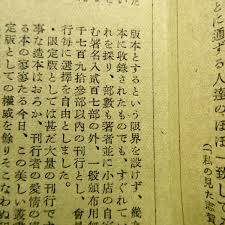 とに通ずる人達のほぼ一致して
（「私の見た
版本とするという限界を設けず、幾
本に収録されたものでも、すぐれてい
れを採り、部數も著者並に小店の自家
む署名入貳百七部の外、一般頒布用
千七百九拾参部以內の刊行とし、會
行毎に選擇を自由とした。
・限定版としては甚だ大量の刊行
事な造本はおろか、刊行者の愛情の
る本の寥寥たる今日、この美しい叢
定版としての權威を餘りそこなわぬ